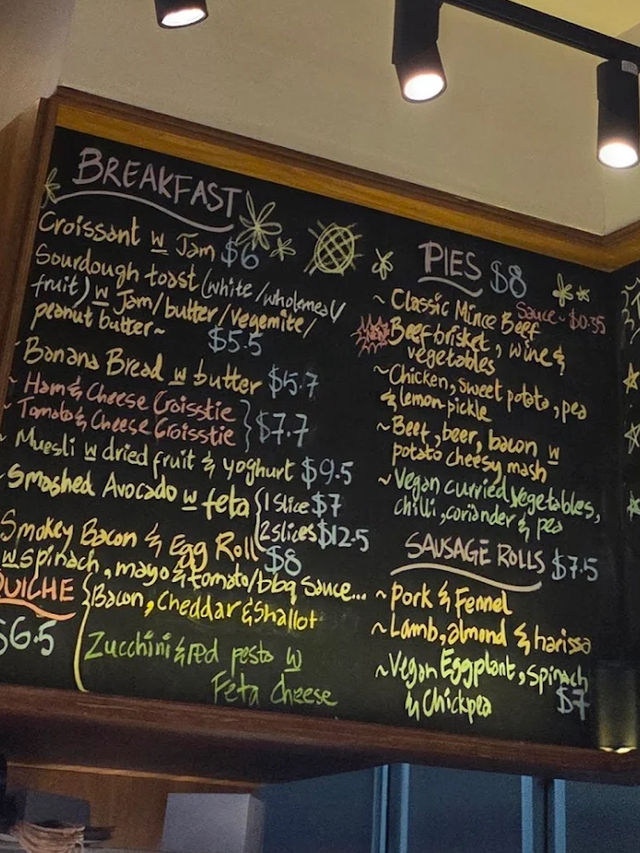 BREAKFAST
Croissant w Jam $6
Sourdough toast (white/wholemeal/
fruit) w Jam/butter/vegemite/
peanut butter~
$5.5
~Banana Bread w butter $5.7
~Ham & Cheese Croisstie
~Tomato & Cheese Croisstie } $7.7
~Muesli w dried fruit & yoghurt $9.5
~Smashed Avocado w feta { 1 Slice $7
2 slices $12.5
Smokey Bacon & Egg Roll $8
w spinach, mayo & tomato/bbq sauce...
QUICHE { Bacon, Cheddar & Shallot
$6.5
Zucchini & red pesto w
Feta Cheese
PIES $8
Sauce~$0.35
~Classic Mince Beef
Beef brisket, wine &
vegetables
~Chicken, sweet potato, pea
& lemon pickle
~Beef, beer, bacon w
potato cheesy mash
~Vegan curried vegetables,
chilli, coriander & pea
SAUSAGE ROLLS $7.5
~Pork & Fennel
~Lamb, almond & harissa
~Vegan Eggplant, Spinach
& Chickpea $7